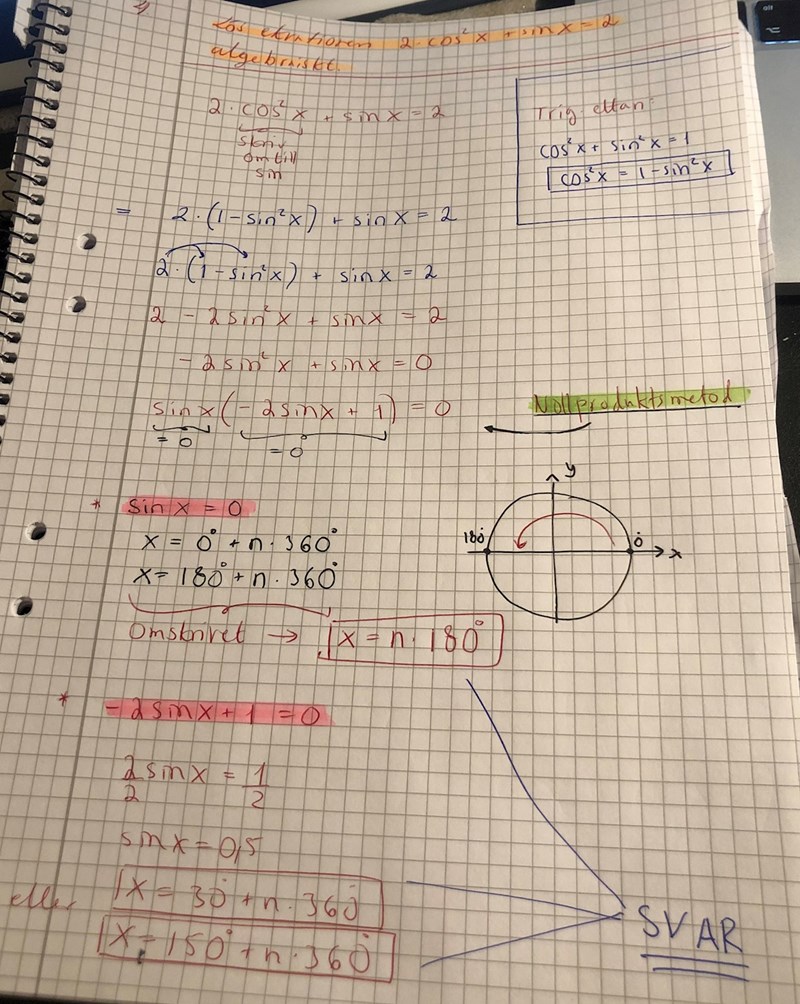 Lös ekvationen 2·cos²x + sinx = 2
algebraiskt.
2·cos²x + sinx = 2
skriv
om till
sin
Trig. ettan:
cos²x + sin²x = 1
cos²x = 1-sin²x
= 2·(1-sin²x) + sinx = 2
2·(1-sin²x) + sinx = 2
2 - 2sin²x + sinx = 2
- 2sin²x + sinx = 0
sinx(-2sinx + 1) = 0
= 0
= 0
Nollproduktsmetod
* sinx = 0
x = 0° + n·360°
x = 180° + n·360°
Omskrivet → x = n·180°
y
180°
0°
x
* -2sinx + 1 = 0
2sinx = 1
2 2
sinx = 0,5
x = 30° + n·360°
eller
x = 150° + n·360°
SVAR